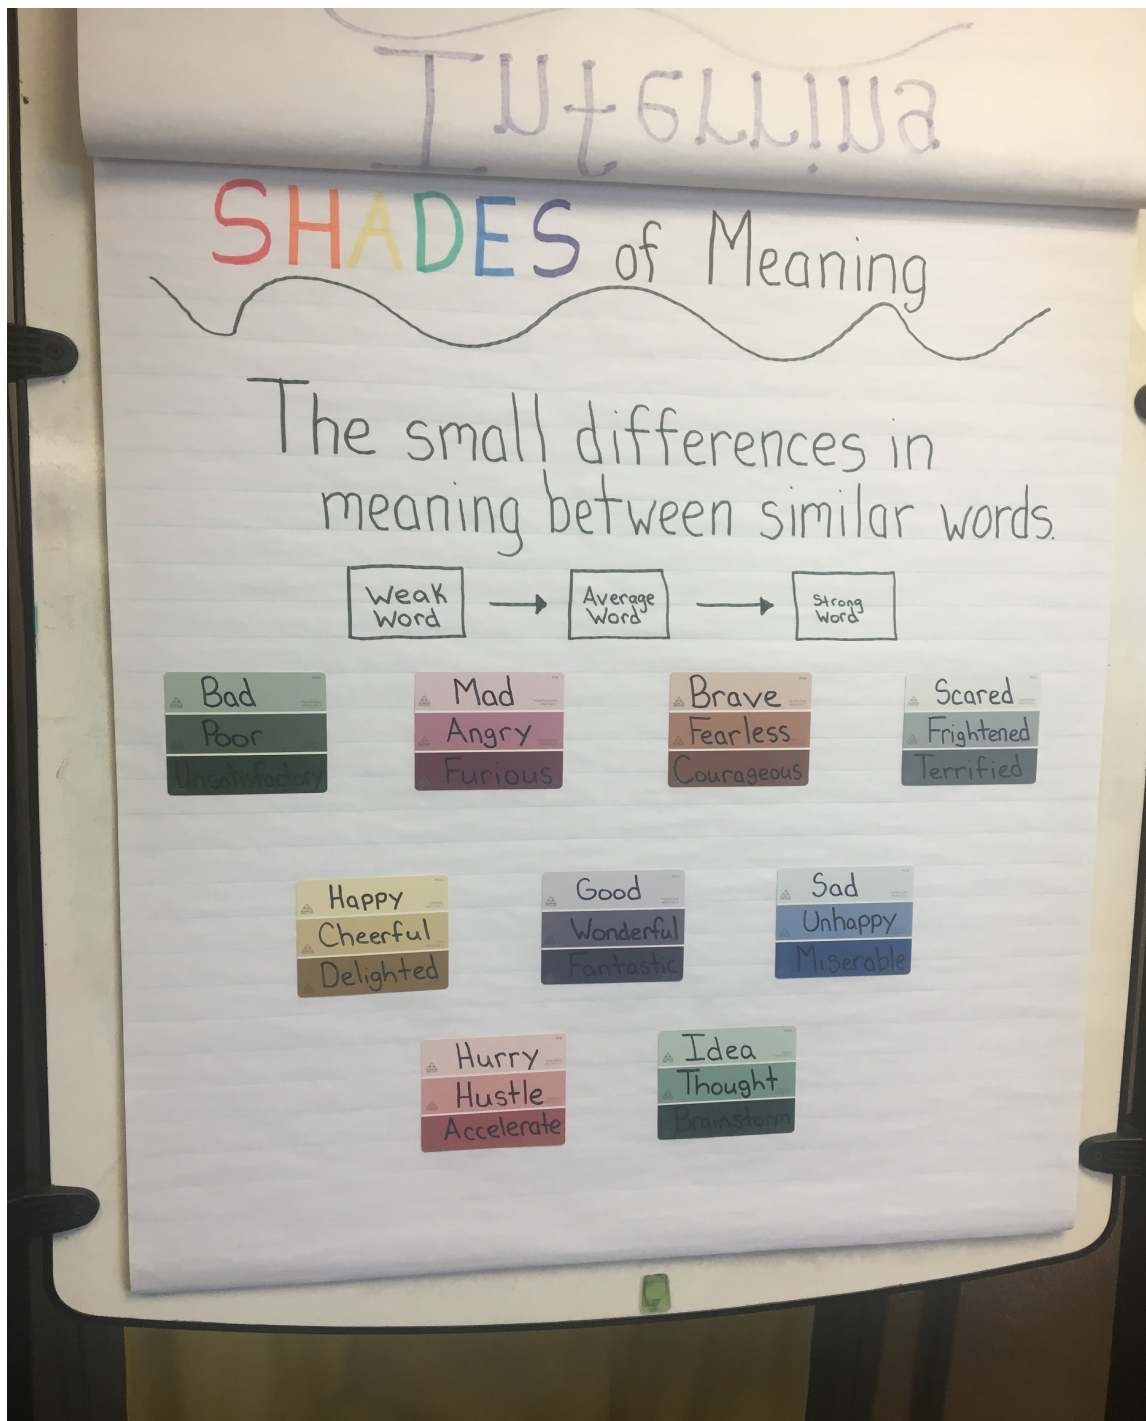 Inferring
SHADES of Meaning
The small differences in
meaning between similar words.
Weak
Word
Average
Word
Strong
Word
Bad
Poor
Unsatisfactory
Mad
Angry
Furious
Brave
Fearless
Courageous
Scared
Frightened
Terrified
Happy
Cheerful
Delighted
Good
Wonderful
Fantastic
Sad
Unhappy
Miserable
Hurry
Hustle
Accelerate
Idea
Thought
Brainstorm